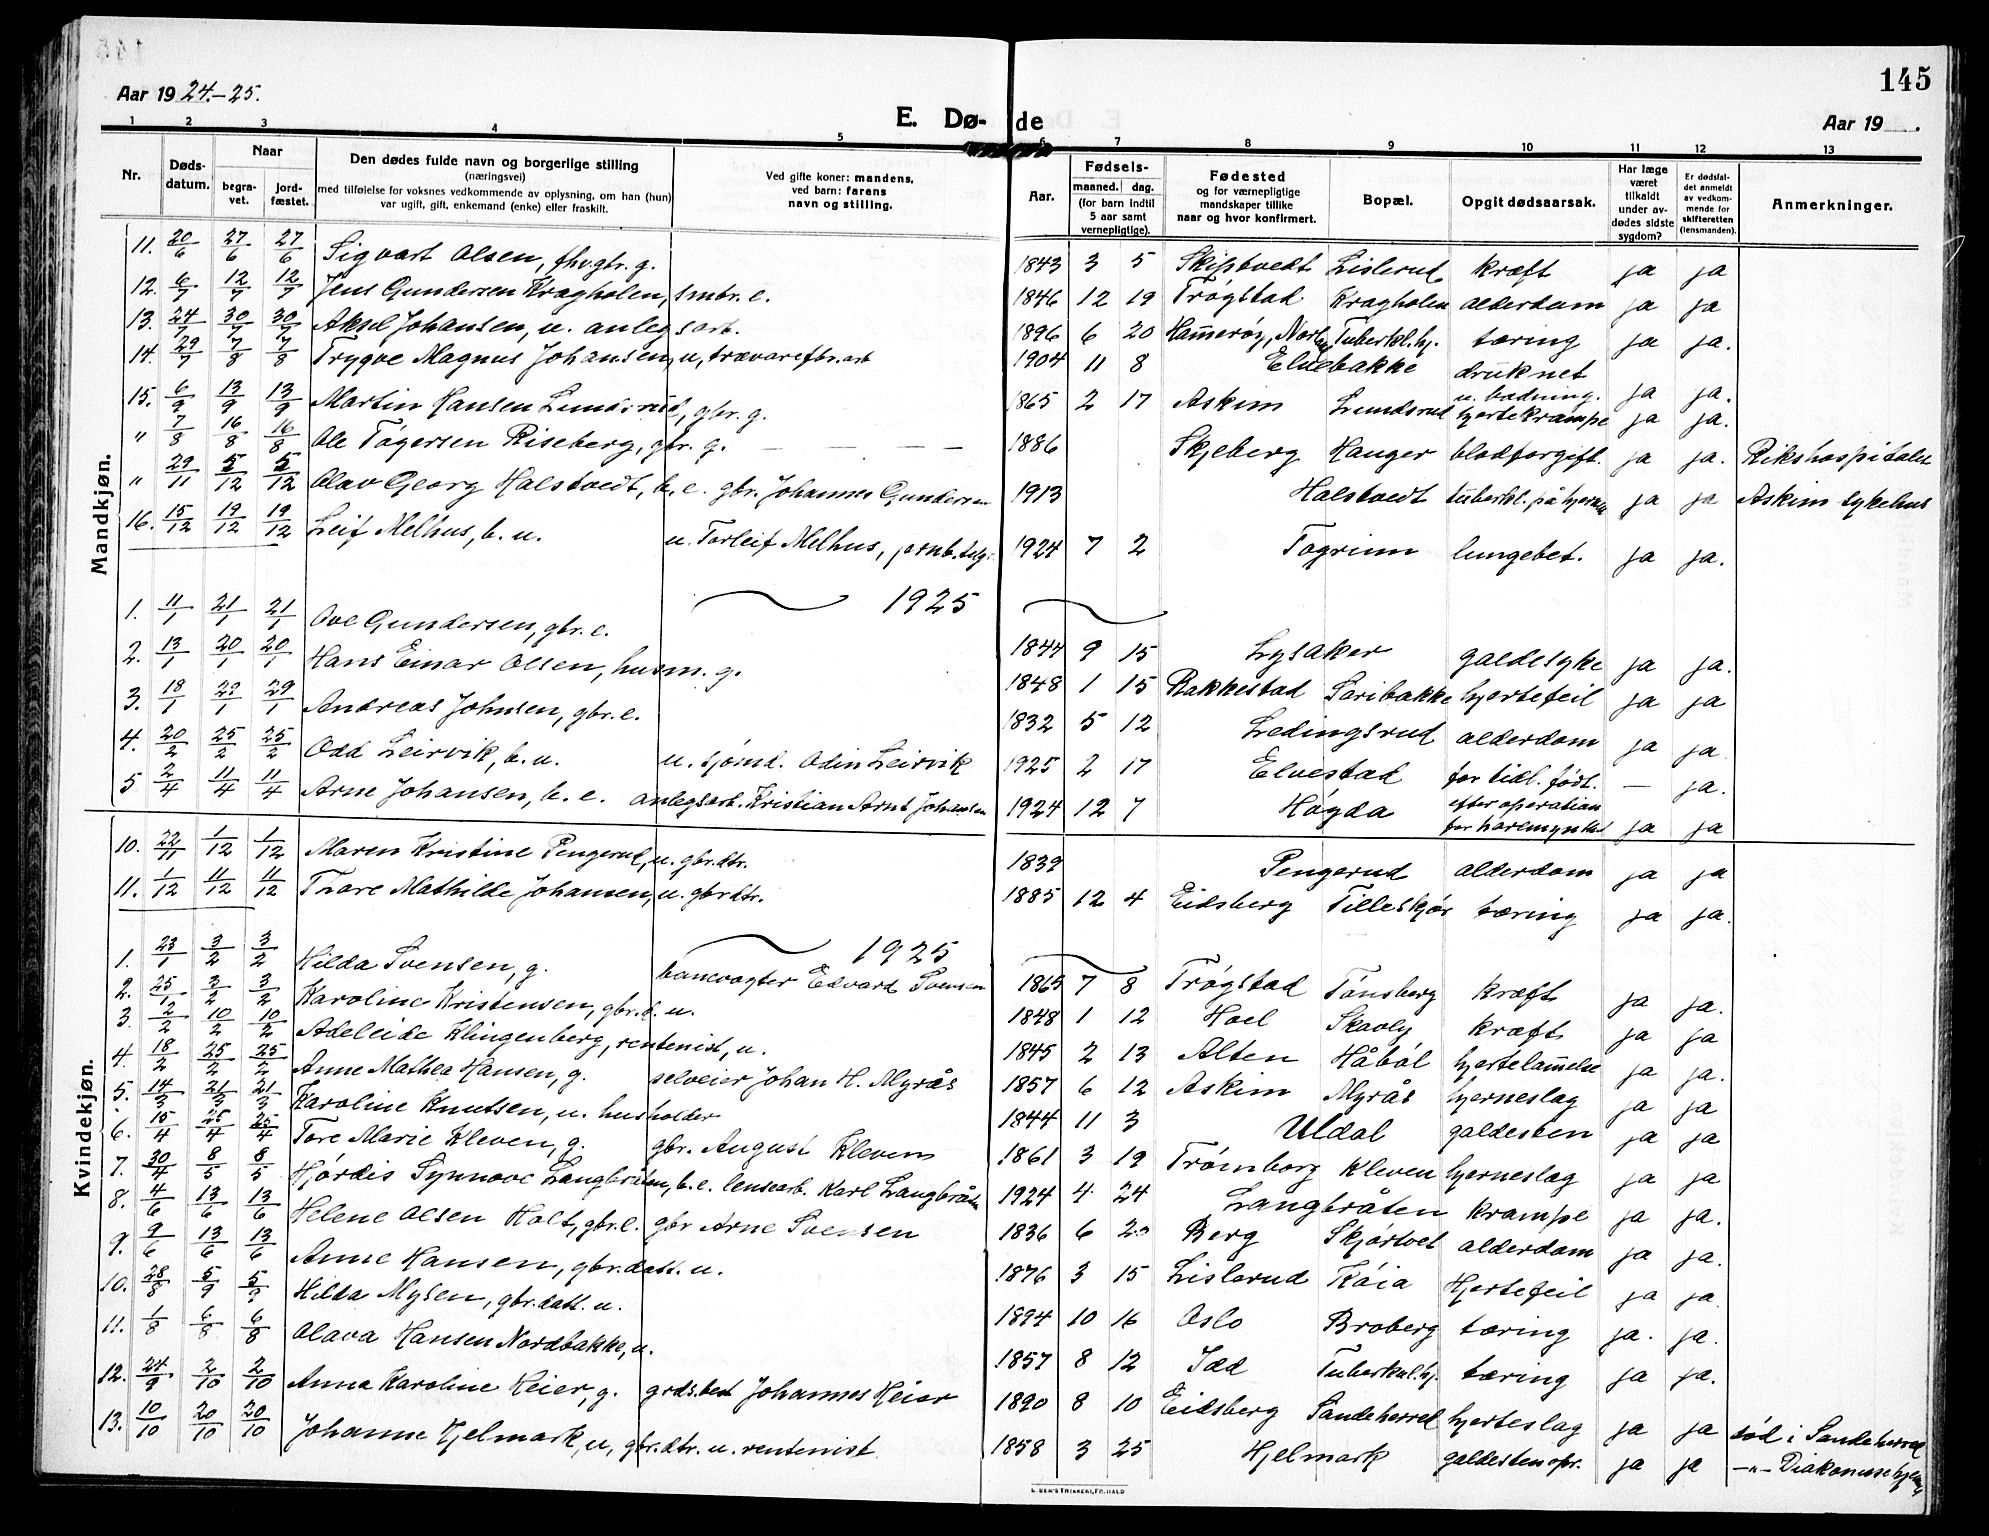 145
Aar 1924.-25.
E. Dø- de
Aar 19 .
1 2 3 4 5 6 7 8 9 10 11 12 13
Nr.
Døds-
datum.
Naar
begra-
vet.
jord-
fæstet.
Den dødes fulde navn og borgerlige stilling
(næringsvei)
med tilføielse for voksnes vedkommende av oplysning, om han (hun)
var ugift, gift, enkemand (enke) eller fraskilt.
Ved gifte koner: mandens,
ved barn: farens
navn og stilling.
Aar.
Fødsels-
maaned. dag.
(for barn indtil
5 aar samt
vernepligtige).
Fødested
og for værnepligtige
mandskaper tillike
naar og hvor konfirmert.
Bopæl.
Opgit dødsaarsak.
Har læge
været
tilkaldt
under av-
dødes sidste
sygdom?
Er dødsfal-
det anmeldt
av vedkom-
mende for
skifteretten
(lensmanden).
Anmerkninger.
Mandkjøn.
11. 20/6 27/6 27/6 Sigvart Olsen, fhv. gbr. g. 1843 3 5 Skiptvedt Lislerud kræft ja ja
12. 6/7 12/7 12/7 Jens Gundersen Kragholen, smbr. e. 1846 12 19 Trøgstad Kragholen alderdom ja ja
13. 24/7 30/7 30/7 Aksel Johansen, u. anlegsarb. 1896 6 20 Hamerøy, Norl. Tuberkl.hj. tæring ja ja.
14. 29/7 7/8 7/8 Trygve Magnus Johansen, u, trævarefbr.arb 1904 11 8 Elvebakke druknet u. badning. ja ja.
15. 6/9 13/9 13/9 Martin Hansen Lundsrud, gbr. g. 1865 2 17 Askim Lundsrud hjertekrampe ja ja.
" 7/8 16/8 16/8 Ole Tøgersen Riseberg, gbr. g. — — — 1886 Skjeberg Hanger blodforgift. ja ja. Rikshospitalet
" 29/11 5/12 5/12 Olav Georg Halstvedt, b. e. gbr. Johannes Gundersen 1913 Halstvedt tuberkl. på hjernen ja ja Askim sykehus
16. 15/12 19/12 19/12 Leif Melhus, b. u. u. Torleif Melhus, jernb.telg. 1924 7 2 Togrinn lungebet. ja ja.
1925
1. 11/1 21/1 21/1 Ove Gundersen, gbr. e. 1844 9 15 Lysaker galdesyke ja ja.
2. 13/1 20/1 20/1 Hans Einar Olsen, husm. g. 1848 1 15 Rakkestad Saribakke hjertefeil ja ja
3. 18/1 29/1 29/1 Andreas Johnsen, gbr. e. 1832 5 12 Ledingsrud alderdom ja ja
4. 20/2 25/2 25/2 Odd Leirvik, b. u. u. sjømd. Odin Leirvik 1925 2 17 Elvestad for tidl. født. — ja.
5 2/4 11/4 11/4 Arne Johansen, b. e. anlegsarb. Kristian Arnt Johansen 1924 12 7 Høgda efter operation for ja ja
Kvindekjøn.
10. 22/11 1/12 1/12 Maren Kristine Pengerud, u. gbr.dtr. 1839 Pengerud alderdom ja ja
11. 1/12 11/12 11/12 Thore Mathilde Johansen, u. gbr dtr. 1885 12 4 Eidsberg Tilleskjør tæring ja ja.
1925
1. 23/1 3/2 3/2 Hilda Svensen, g. banevogter Edvard Svensen 1865 7 8 Trøgstad Tønsberg kræft ja ja.
2. 25/1 3/2 3/2 Karoline Kristensen, gbr.d. u. 1848 1 12 Hoel Skavly kræft ja ja
3. 2/2 10/2 10/2 Adeleide Klingenberg, rentenist, u. 1845 2 13 Alten Håbøl hjertelamelse ja ja.
4. 18/2 25/2 25/2 Anne Mathea Hansen, g. selveier Johan H. Myrås 1857 6 12 Askim Myrås hjerneslag ja ja
5. 14/3 21/3 21/3 Karoline Knutsen, u. husholder 1844 11 3 Uldal galdesten ja ja
6. 15/4 25/4 25/4 Tore Marie Kleven, g. gbr. August Kleven 1861 3 19 Trømborg Kleven hjerneslag ja ja
7. 30/4 8/5 8/5 Hjørdis Synnøve Langbråten, b. e. lensearb. Karl Langbråten 1924 4 24 Langbråten krampe ja ja.
8. 4/6 13/6 13/6 Helene Olsen Holt, gbr. e. gbr Arne Svensen 1836 6 20 Berg Skjørtvet alderdom ja ja.
9. 9/6 13/6 13/6 Anne Hansen, gbr.datt. u. 1876 3 15 Lislerud Kåia Hjertefeil ja ja.
10. 28/8 5/9 5/9 Hilda Mysen, gbr.datt. u. 1894 10 16 Oslo Broberg tæring ja. ja.
11. 1/8 6/8 6/8 Olava Hansen Nordbakke, u. 1857 8 12 Idd Tuberkul.hj. tæring ja ja.
12. 24/9 2/10 2/10 Anna Karoline Heier, g. grdsbest Johannes Heier 1890 8 10 Eidsberg Sandeherred hjerteslag ja ja død i Sandeherred
13. 10/10 20/10 20/10 Johanne Hjelmark, u, gbr.dtr. u. rentenist. 1858 3 25 Hjelmark galdesten opr. ja ja —"— Diakonissehjem